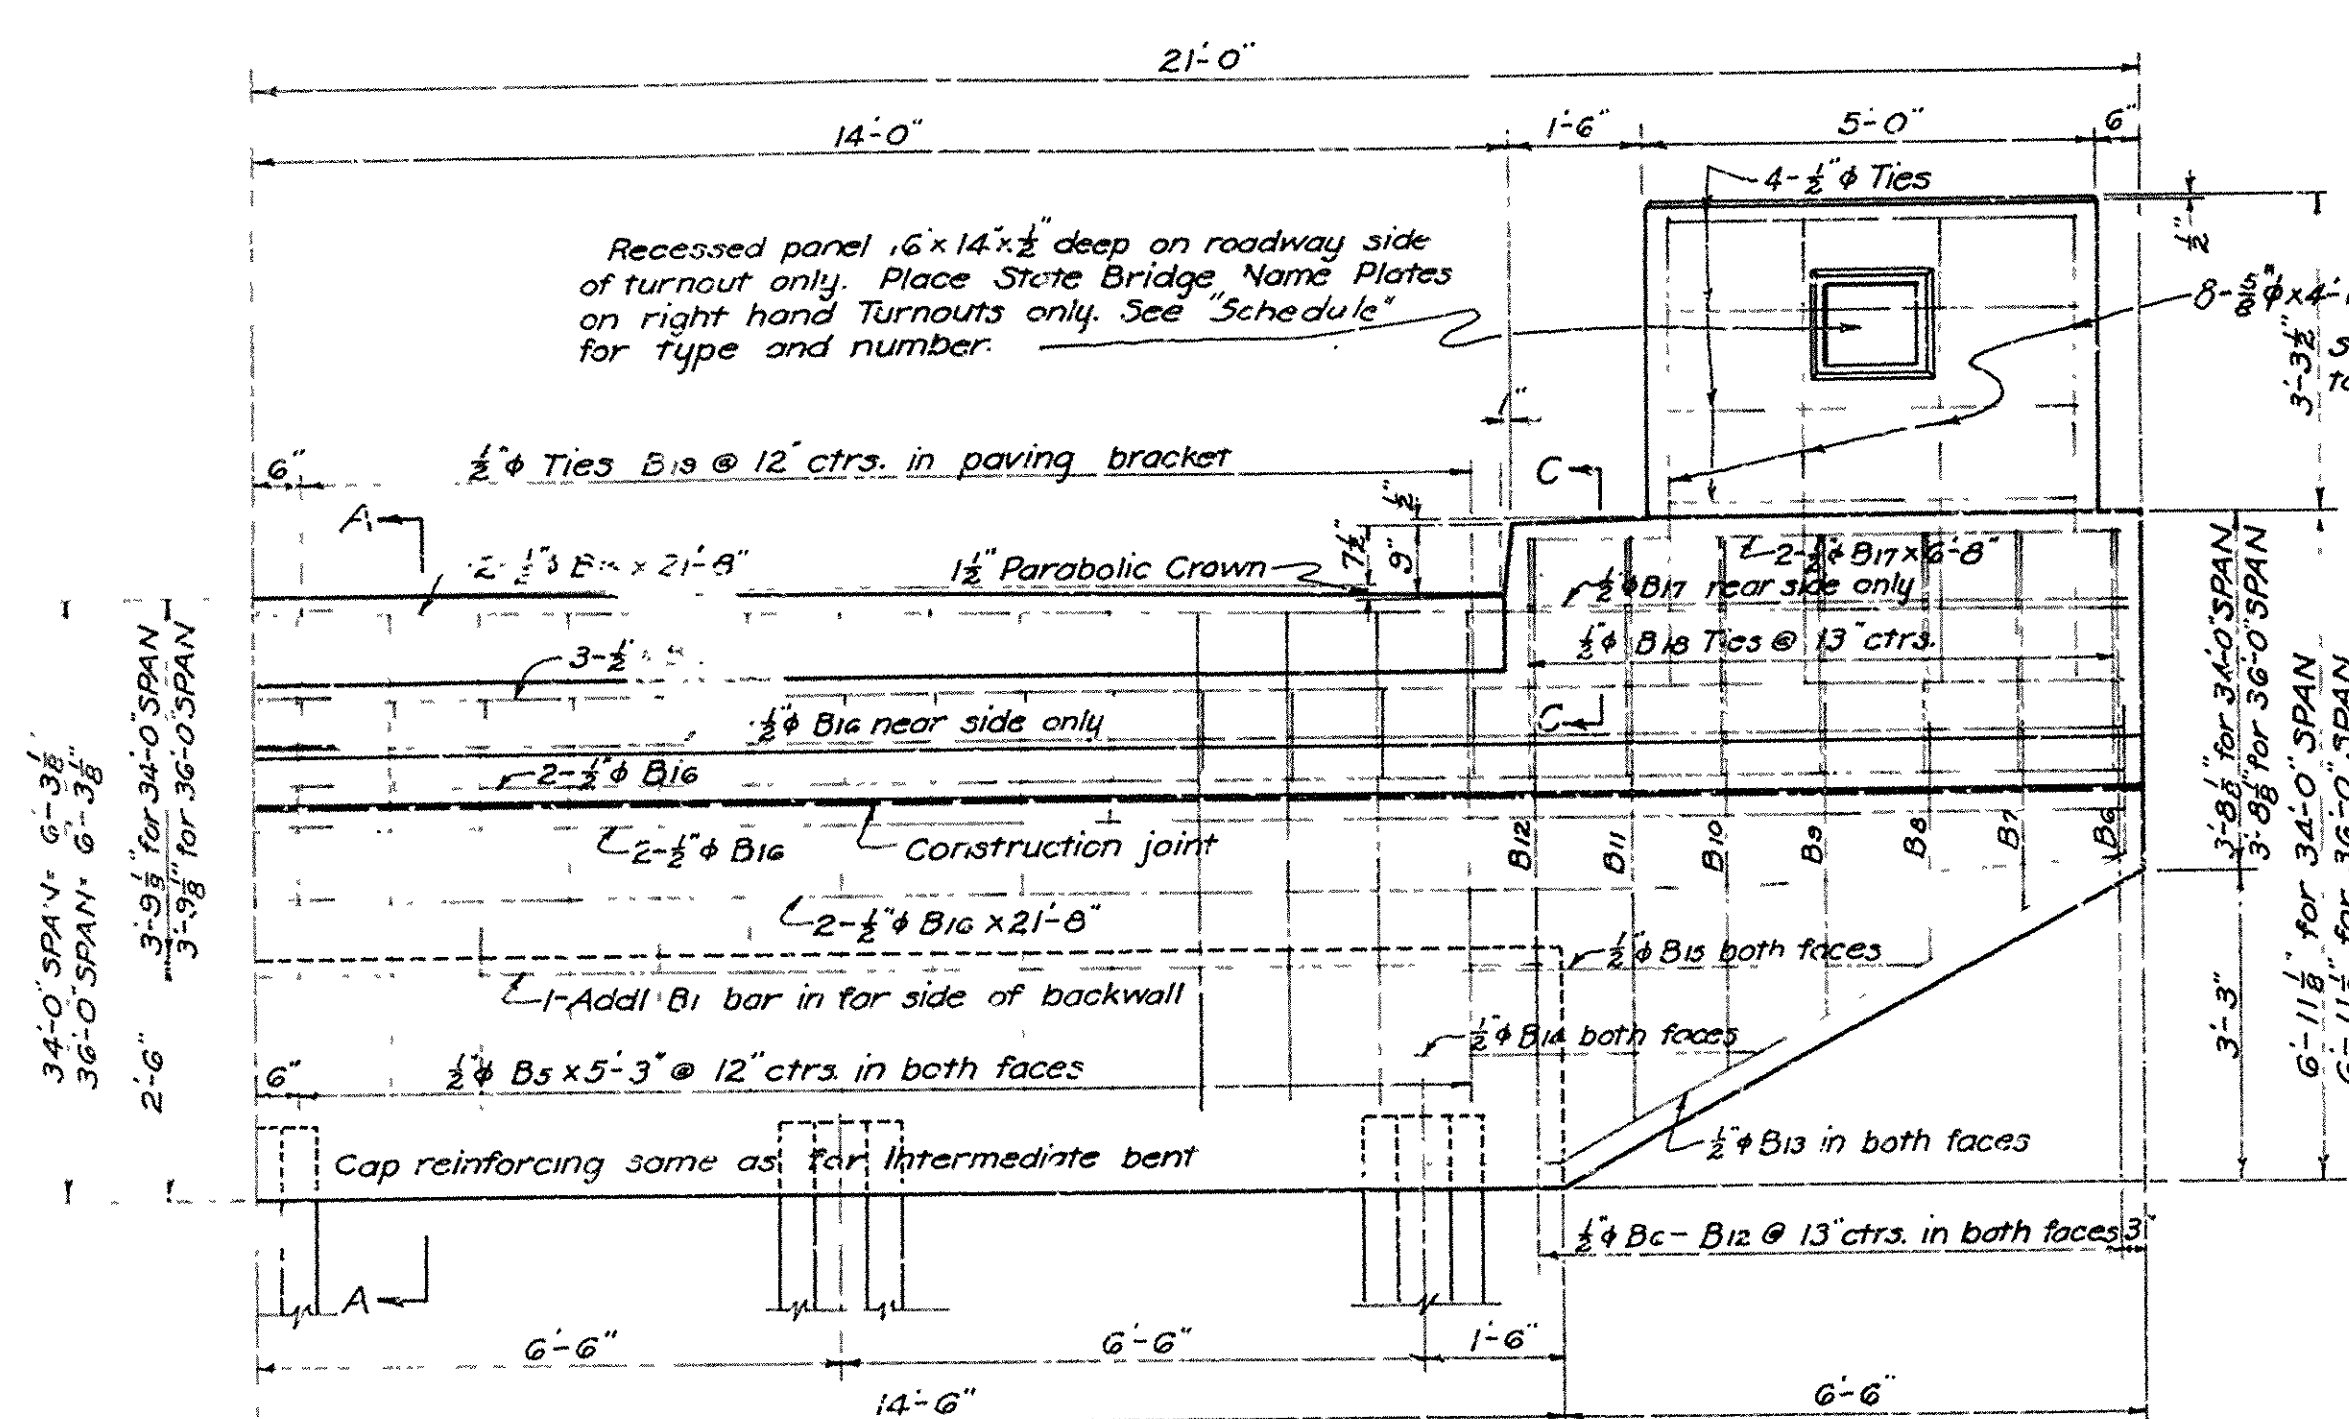 21'-0"
14'-0"
1'-6"
5'-0"
6"
4-½"ϕ Ties
½"
Recessed panel 16"x14"x½" deep on roadway side
of turnout only. Place State Bridge Name Plates
on right hand Turnouts only. See "Schedule"
for type and number.
3'-3½"
1"
6"
½"ϕ Ties B19 @ 12" ctrs. in paving bracket
C
½"
A
x 21'-8"
1½" Parabolic Crown
7½"
9"
2-½"ϕ B17 x 6'-8"
½"ϕ B17 near side only
½"ϕ B18 Ties @ 13" ctrs.
3-½"
½"ϕ B16 near side only
C
2-½"ϕ B16
2-½"ϕ B16
Construction joint
B12
B11
B10
B9
B8
B7
B6
2-½"ϕ B16 x 21'-8"
½"ϕ B15 both faces
1-Addl B1 bar in far side of backwall
½"ϕ B14 both faces
6"
½"ϕ B5 x 5'-3" @ 12" ctrs. in both faces
½"ϕ B13 in both faces
Cap reinforcing same as for Intermediate bent
½"ϕ B6 - B12 @ 13" ctrs. in both faces
3"
A
6'-6"
6'-6"
1'-6"
14'-6"
6'-6"
34'-0" SPAN = 6'-3⅛"
36'-0" SPAN = 6'-3⅛"
3'-9⅛" for 34'-0" SPAN
3'-9⅛" for 36'-0" SPAN
2'-6"
3'-8⅛" for 34'-0" SPAN
3'-8⅛" for 36'-0" SPAN
3'-3"
6'-11⅛" for 34'-0" SPAN
6'-11⅛" for 36'-0" SPAN